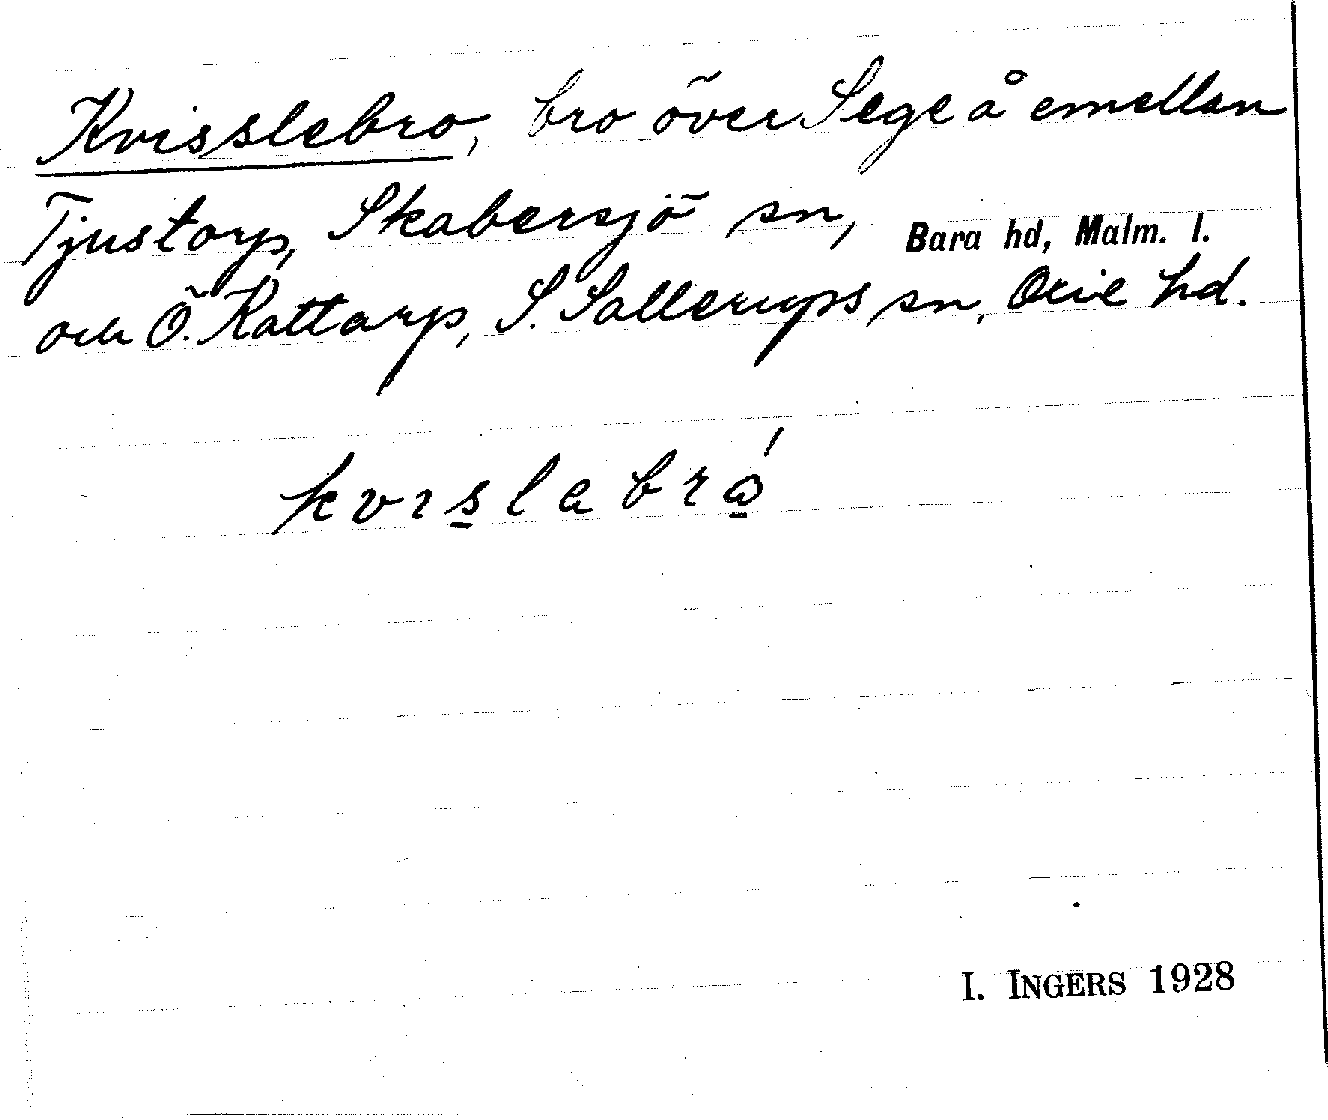 Kvisslebro, bro över Sege å emellan
Tjustorp, Skabersjö sn, Bara hd, Malm. l.
och Ö. Kattarp, S. Sallerups sn, Oxie hd.
kvıslabrǻ
I. INGERS 1928